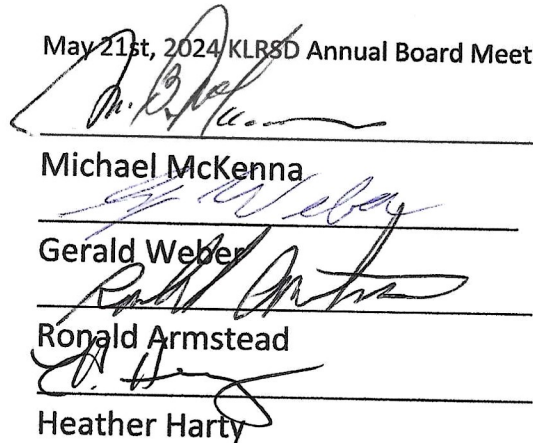 May 21st, 2024 KLRSD Annual Board Meet
Michael McKenna
G Weber
Gerald Weber
Ronald Armstead
Heather Harty